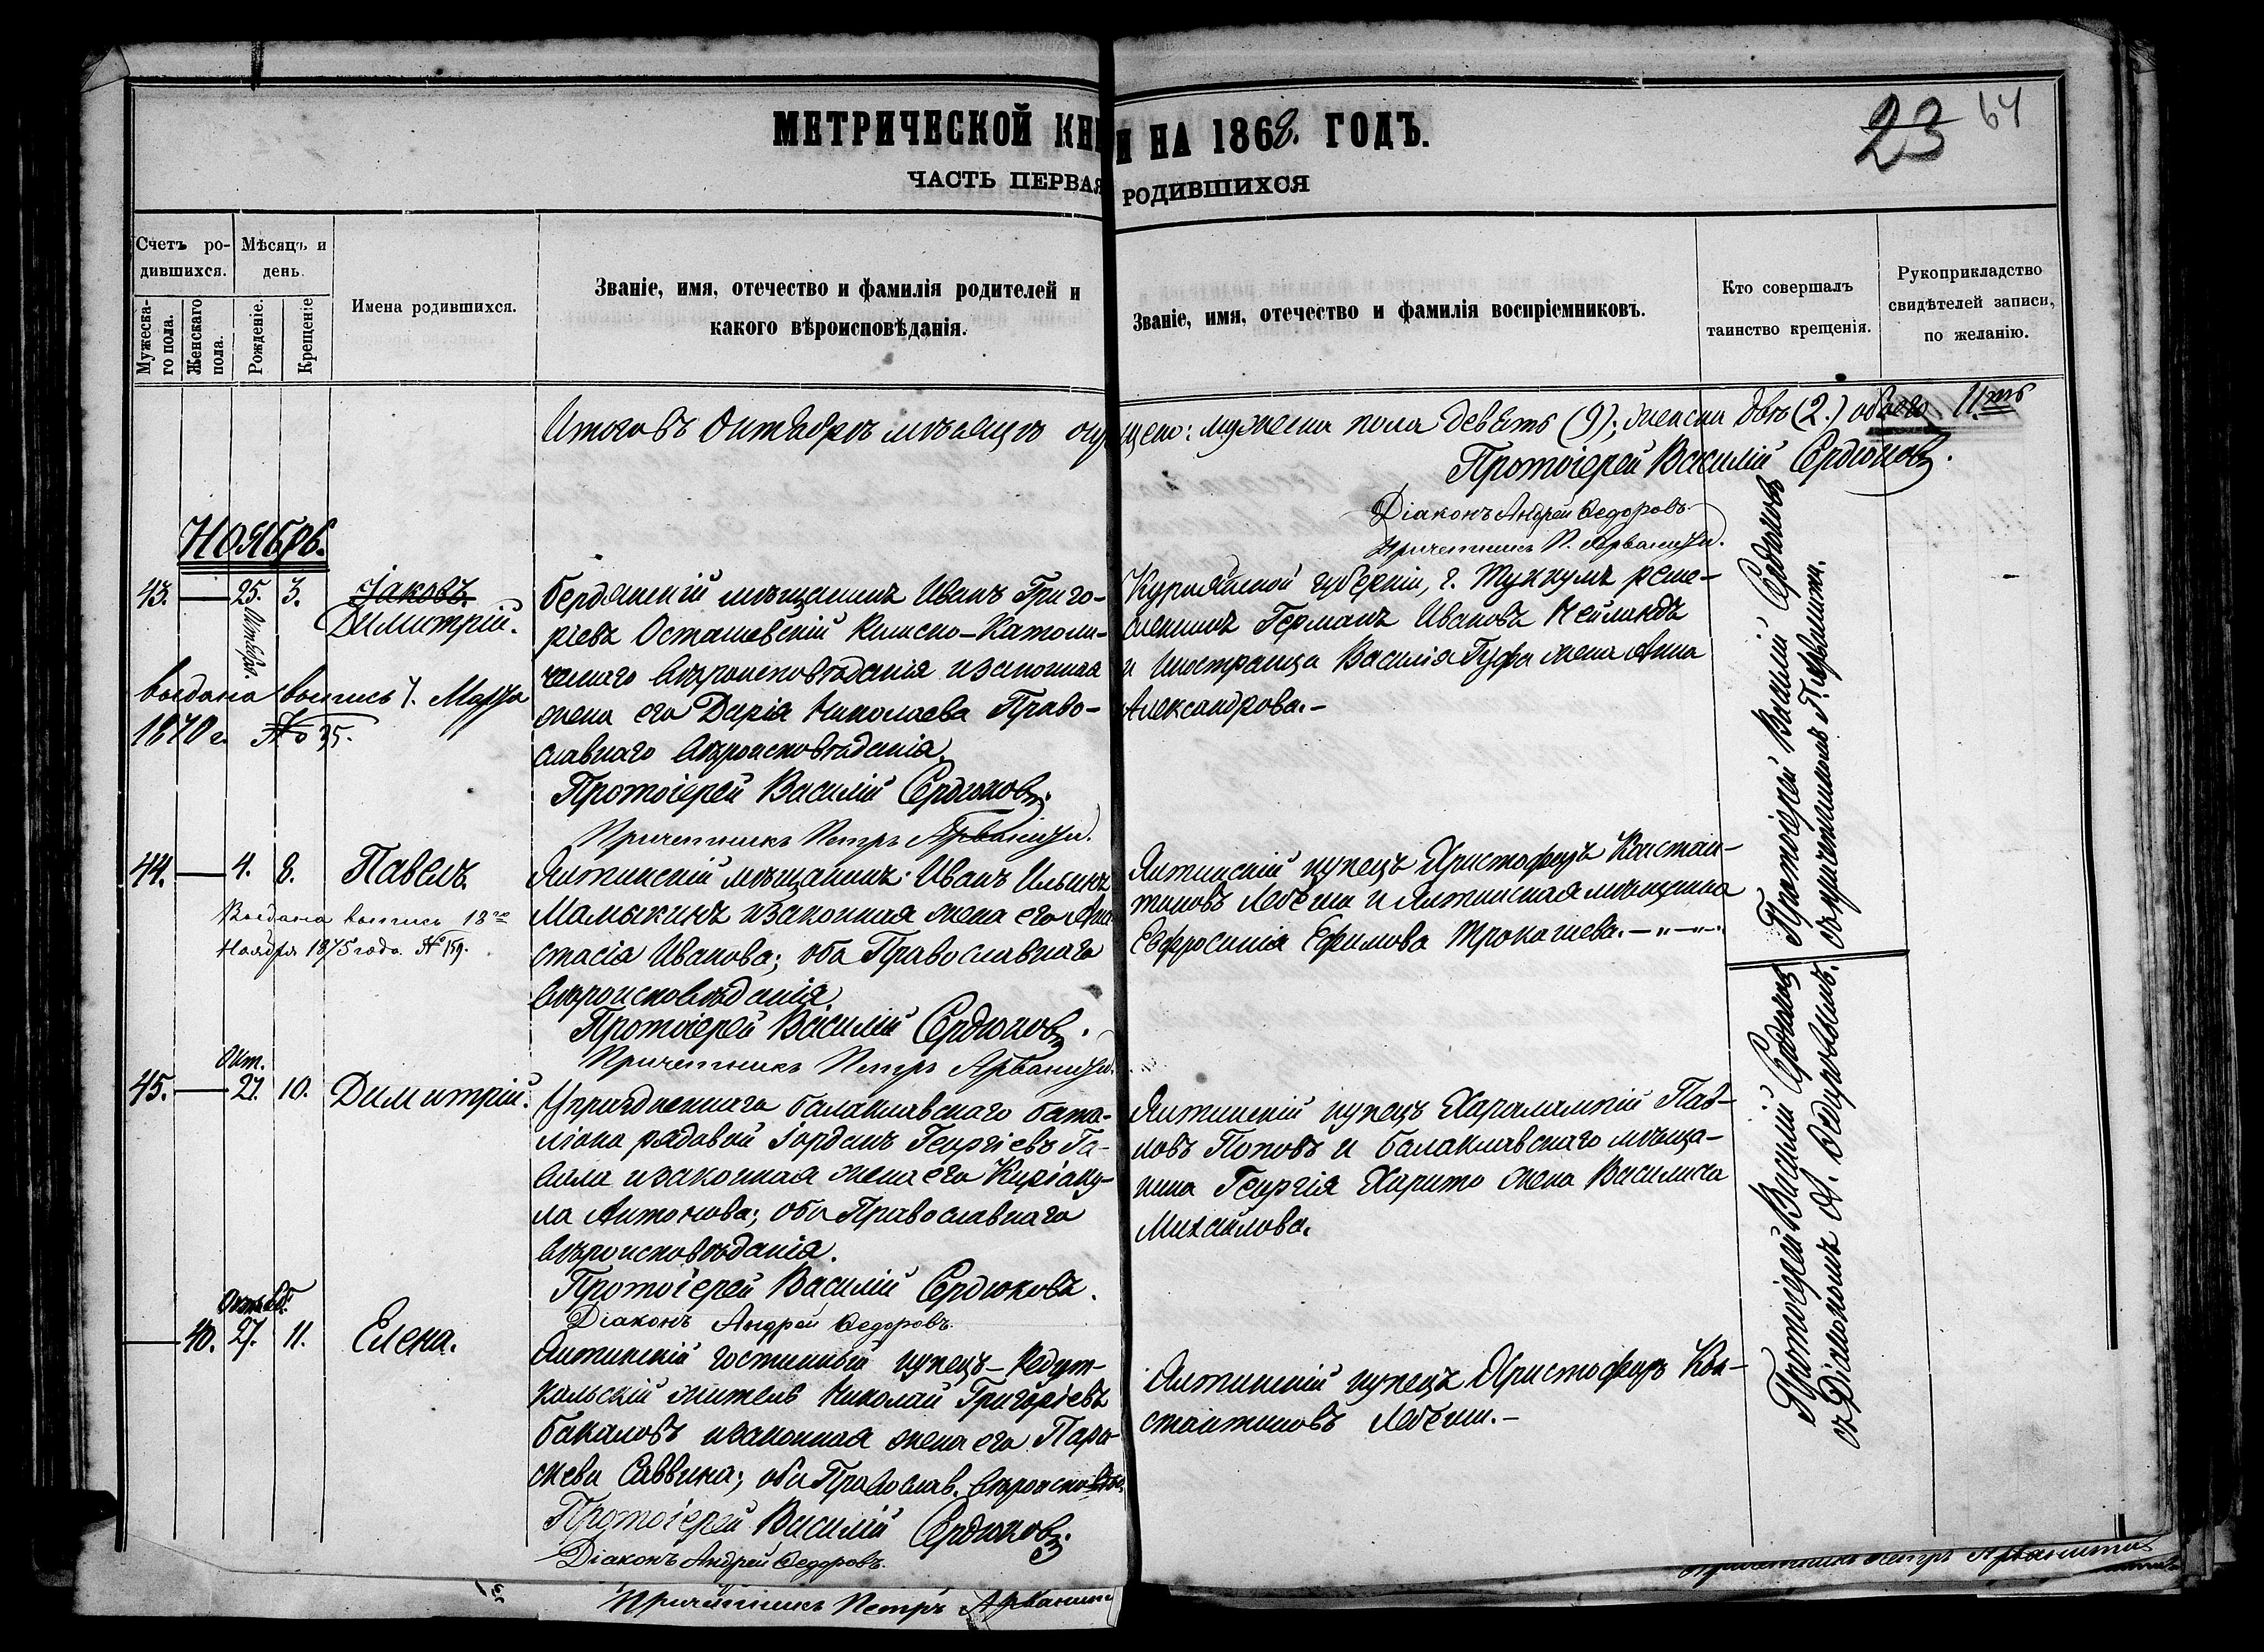 МЕТРИЧЕСКОЙ КНИ И НА 1868. ГОДЪ.
23 64
ЧАСТЬ ПЕРВАЯ РОДИВШИХСЯ
Счетъ родившихся.
Мужеска-го пола.
Женскаго пола.
Мѣсяцъ и день.
Рожденіе.
Крещеніе
Имена родившихся.
Званіе, имя, отечество и фамилія родителей и
какого вѣроисповѣданія.
Званіе, имя, отечество и фамилія воспріемниковъ.
Кто совершалъ
таинство крещенія.
Рукоприкладство
свидѣтелей записи,
по желанію.
Итого въ Октябрѣ мѣсяцѣ щено: мужеска пола девять (9); женска двѣ (2.) обоего 11ть
Протоіерей Василій Сердюковъ.
Діаконъ Андрей Ѳедоровъ.
Причетникъ П. Арванити.
Ноябрь.
43. — 25. Октября. 3.
Іаковъ.
Димитрій.
выдана выпись 7. Марта
1870 г. № 35.
Бердянскій мѣщанинъ Иванъ Григо-
ріевъ Осташевскій Римско-Католи-
ческаго вѣроисповѣданія и законная
жена его Дарія Николаева Право-
славнаго вѣроисповѣданія.
Протоіерей Василій Сердюковъ.
Причетникъ Петръ Арванити.
Курляндской губерніи, г. Туккумъ реме-
сленникъ Германъ Ивановъ Нейландъ
и Иностранца Василія Гуфа жена Анна
Александрова.—
Протоіерей Василій Сердюковъ
съ причетникомъ П. Арванити.
44. — 4. 8. Павелъ.
Выдана выпись 18го
Ноября 1875 года. № 159.
Ялтинскій мѣщанинъ Иванъ Ильинъ
Мамыкинъ и законная жена его Ана
стасія Иванова; оба Православнаго
вѣроисповѣданія.
Протоіерей Василій Сердюковъ.
Причетникъ Петръ Арванити.
Ялтинскій купецъ Христофоръ Констан-
тиновъ Лебеши и Ялтинская мѣщанка
Евфросинія Ефимова Трокошева.—„—„—
Окт.
45. — 27. 10. Димитрій.
Упраздненнаго балаклавскаго бата-
ліона рядовой Іорданъ Георгіевъ Га-
вала и законная жена его Киріаку-
ла Антонова; оба Православнаго
вѣроисповѣданія.
Протоіерей Василій Сердюковъ.
Діаконъ Андрей Ѳедоровъ.
Ялтинскій купецъ Харалампій Пав-
ловъ Поповъ и балаклавскаго мѣща-
нина Георгія Харито жена Василиса
Михайлова.
Протоіерей Василій Сердюковъ
съ Діакономъ А. Ѳедоровымъ.
— 40. 27. 11. Елена.
Ялтинскій гостинный купецъ — Редут-
кальскій житель Николай Григоріевъ
Бакаловъ и законная жена его Пара-
скева Саввина; оба Православ. вѣроисповѣд.
Протоіерей Василій Сердюковъ.
Діаконъ Андрей Ѳедоровъ.
Причетникъ Петръ Арванити
Ялтинскій купецъ Христофоръ Кон-
стантиновъ Лебеши.—
Причетникъ Петръ Арванити